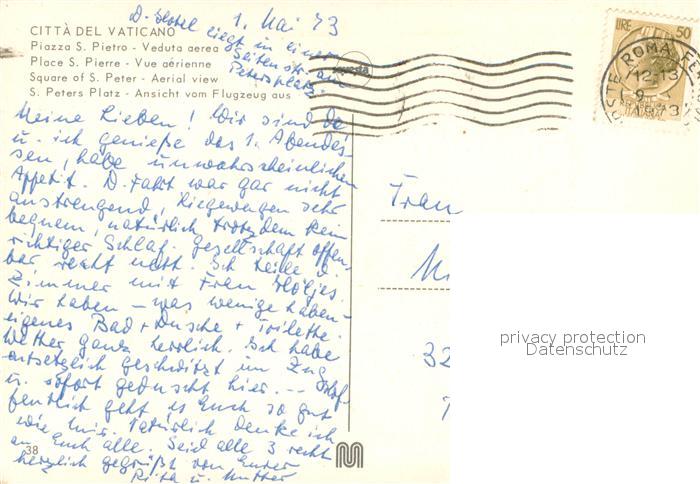 1. Mai 73
D. Hotel
liegt in einer
Seitenstr. am
Petersplatz.
CITTÀ DEL VATICANO
Piazza S. Pietro - Veduta aerea
Place S. Pierre - Vue aérienne
Square of S. Peter - Aerial view
S. Peters Platz - Ansicht vom Flugzeug aus
LIRE 50
ROMA
12-13
Meine Lieben! Wir sind da
u. ich genieße das 1. Abendes-
sen, habe unwahrscheinlichen
Appetit. D. Fahrt war gar nicht
anstrengend, Liegewagen sehr
bequem, natürlich trotzdem kein
richtiger Schlaf. Gesellschaft offen-
bar recht nett. Ich teile d.
Zimmer mit Frau
Wir haben - was wenige haben -
eigenes Bad + Dusche + Toilette.
Wetter ganz herrlich. Ich habe
entsetzlich geschwitzt im Zug
u. sofort geduscht hier. -- Hof-
fentlich geht es Euch so gut
wie mir. Natürlich denke ich
an Euch alle. Seid alle 3 recht
herzlich gegrüßt von Eurer
Rita u. Mutter
38
Frau
32
privacy protection
Datenschutz